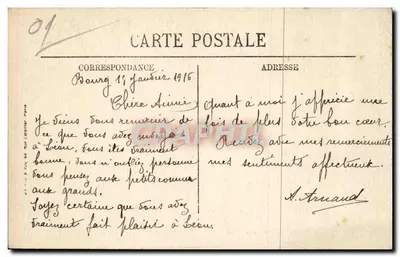 01
CARTE POSTALE
CORRESPONDANCE
ADRESSE
Bourg 14 Janvier 1916
Chère Aimée
Je viens vous remercier de
ce que vous avez envoyé
à Léon, vous êtes vraiment
bonne, vous n'oubliez personne
vous pensez aux petits comme
aux grands.
Soyez certaine que vous avez
vraiment fait plaisir à Léon.
Quant à moi j'apprécie une
fois de plus votre bon cœur.
Recevez avec mes remerciements
mes sentiments affectueux.
A. Arnaud